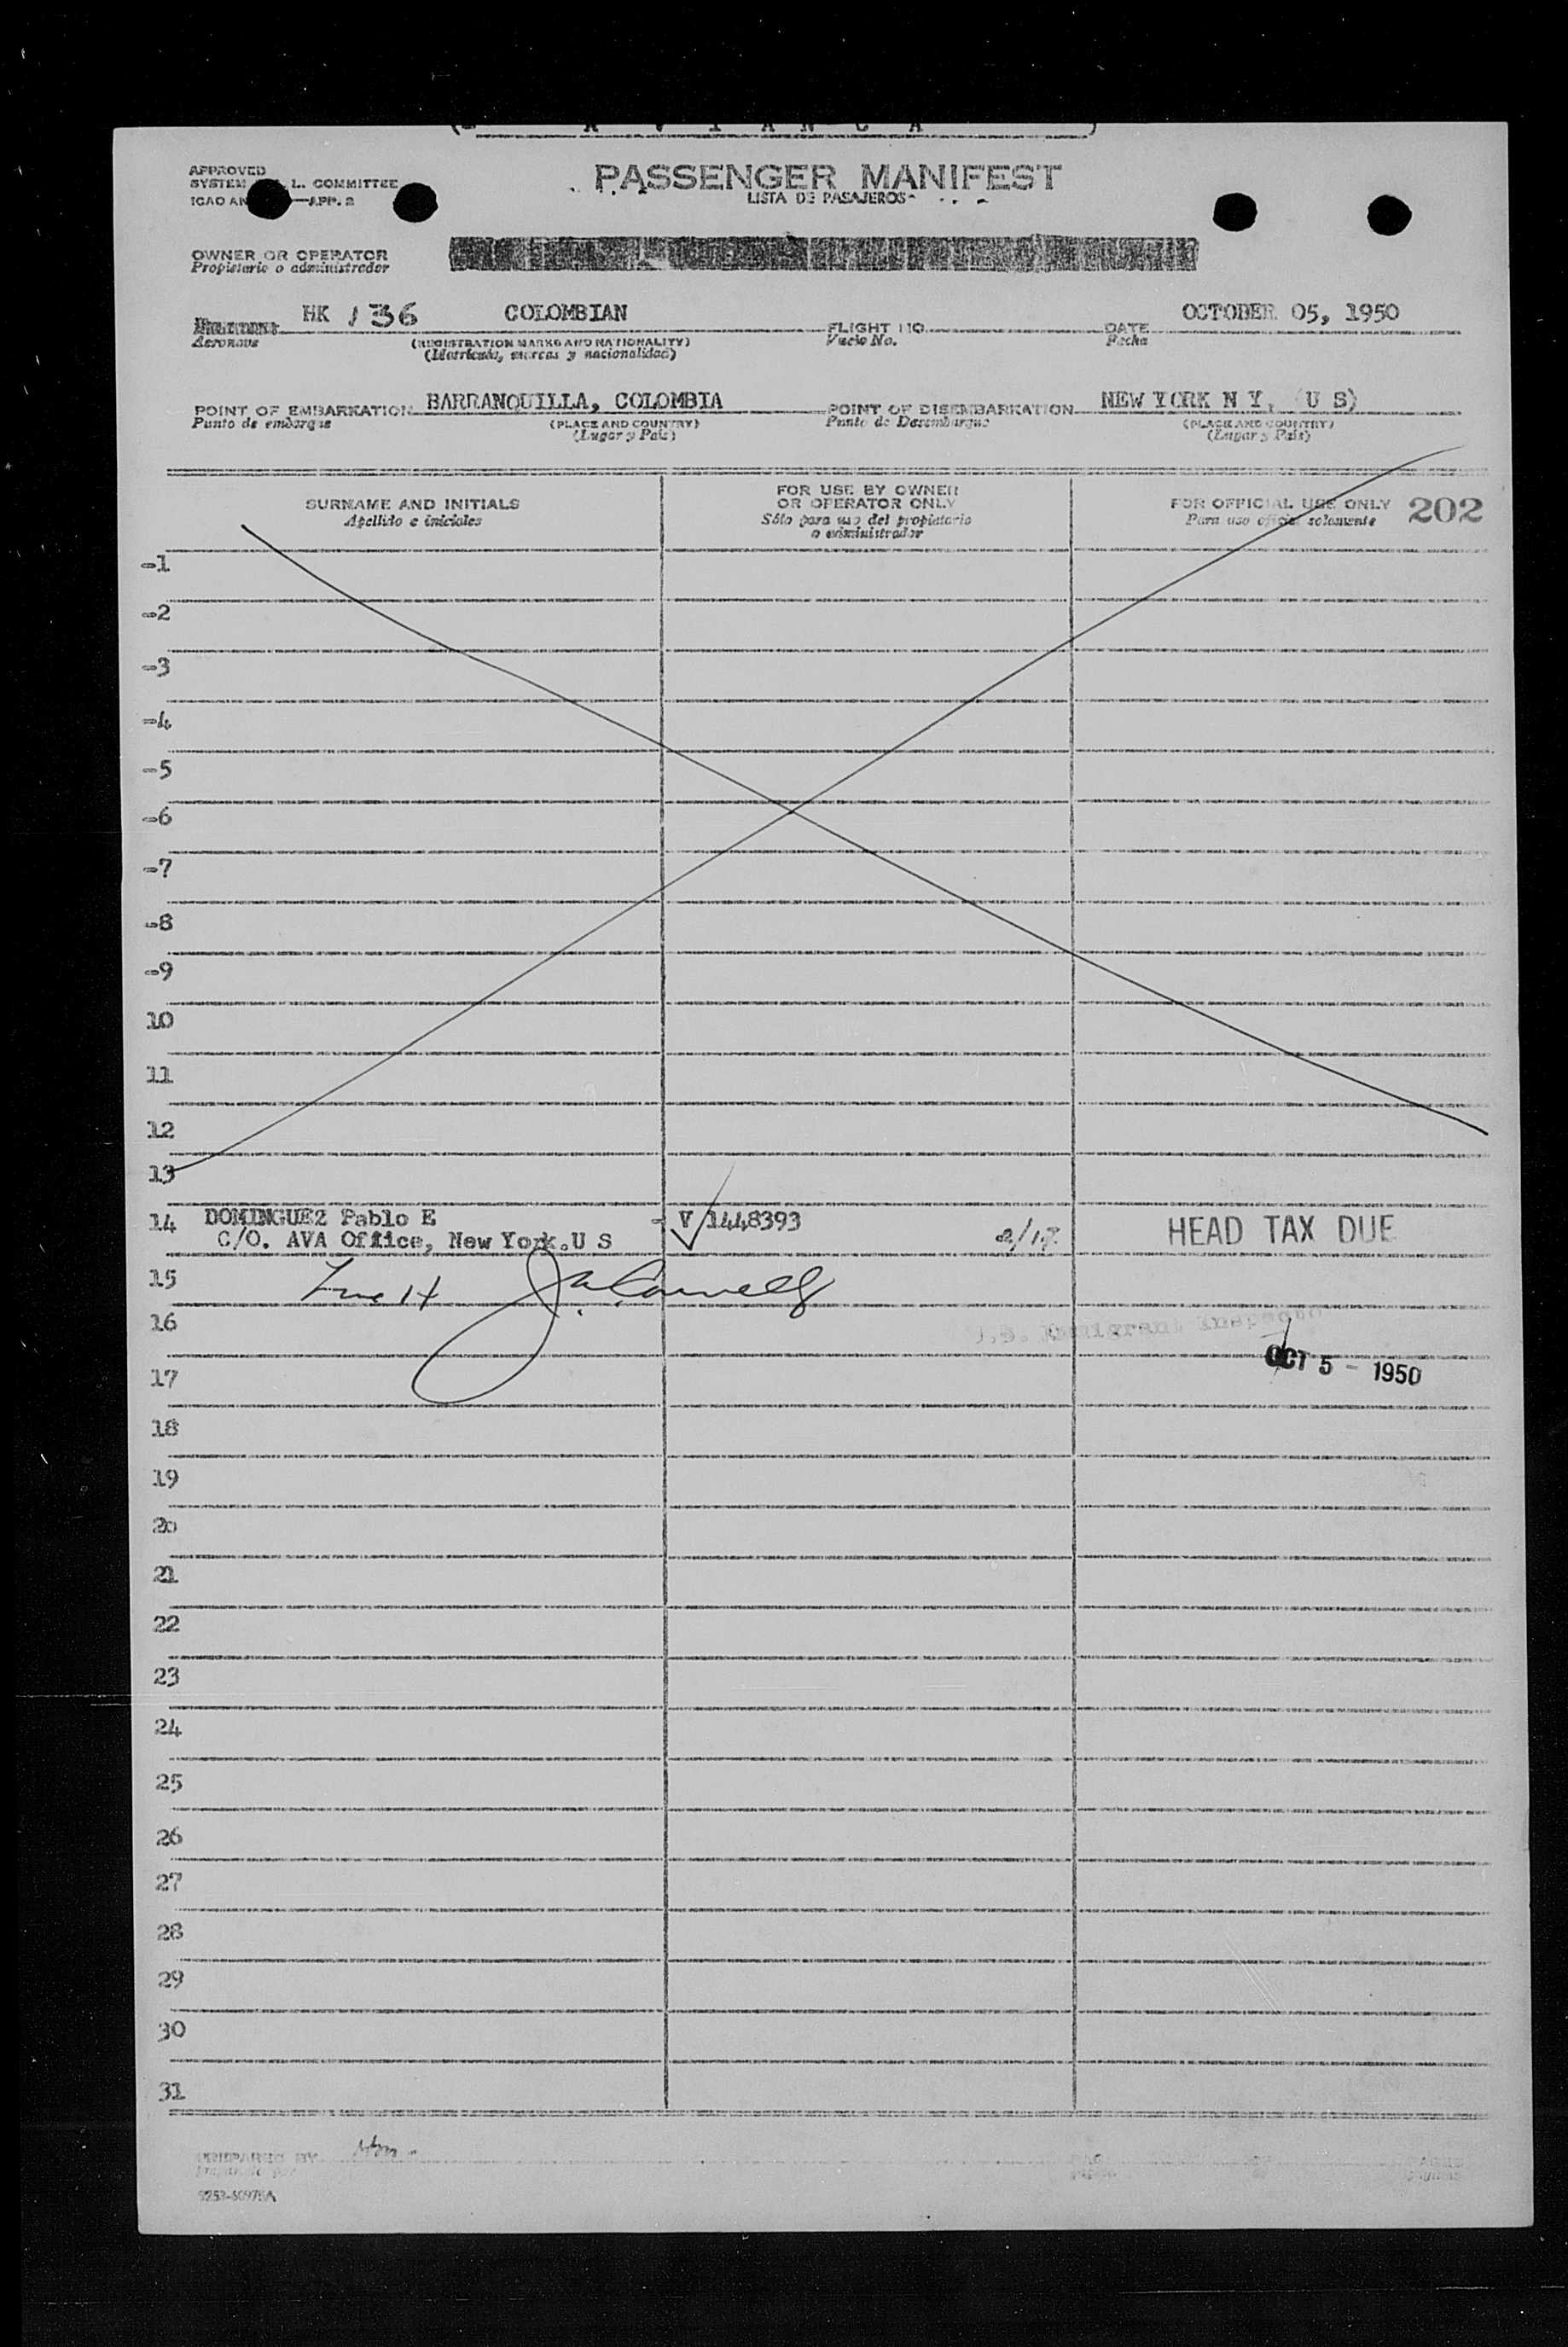 ( A V I A N C A )
APPROVED
SYSTEM L. COMMITTEE
ICAO AN —APP. 2
PASSENGER MANIFEST
LISTA DE PASAJEROS
OWNER OR OPERATOR
Propietario o administrador
HK 136 COLOMBIAN OCTOBER 05, 1950
Aeronave
(REGISTRATION MARKS AND NATIONALITY)
(Matrícula, marcas y nacionalidad)
FLIGHT NO.
Vuelo No.
DATE
Fecha
POINT OF EMBARKATION BARRANQUILLA, COLOMBIA POINT OF DISEMBARKATION NEW YORK N Y, (U S)
Punto de embarque (PLACE AND COUNTRY) Punto de Desembarque (PLACE AND COUNTRY)
(Lugar y País) (Lugar y País)
SURNAME AND INITIALS
Apellido e iniciales
FOR USE BY OWNER
OR OPERATOR ONLY
Sólo para uso del propietario
o administrador
FOR OFFICIAL USE ONLY 202
Para uso oficial solamente
-1
-2
-3
-4
-5
-6
-7
-8
-9
10
11
12
13
14 DOMINGUEZ Pablo E - V 1448393 HEAD TAX DUE
C/O. AVA Office, New York.U S
15 Line 14
16 U.S. Immigrant Inspector
OCT 5 - 1950
17
18
19
20
21
22
23
24
25
26
27
28
29
30
31
PREPARED BY